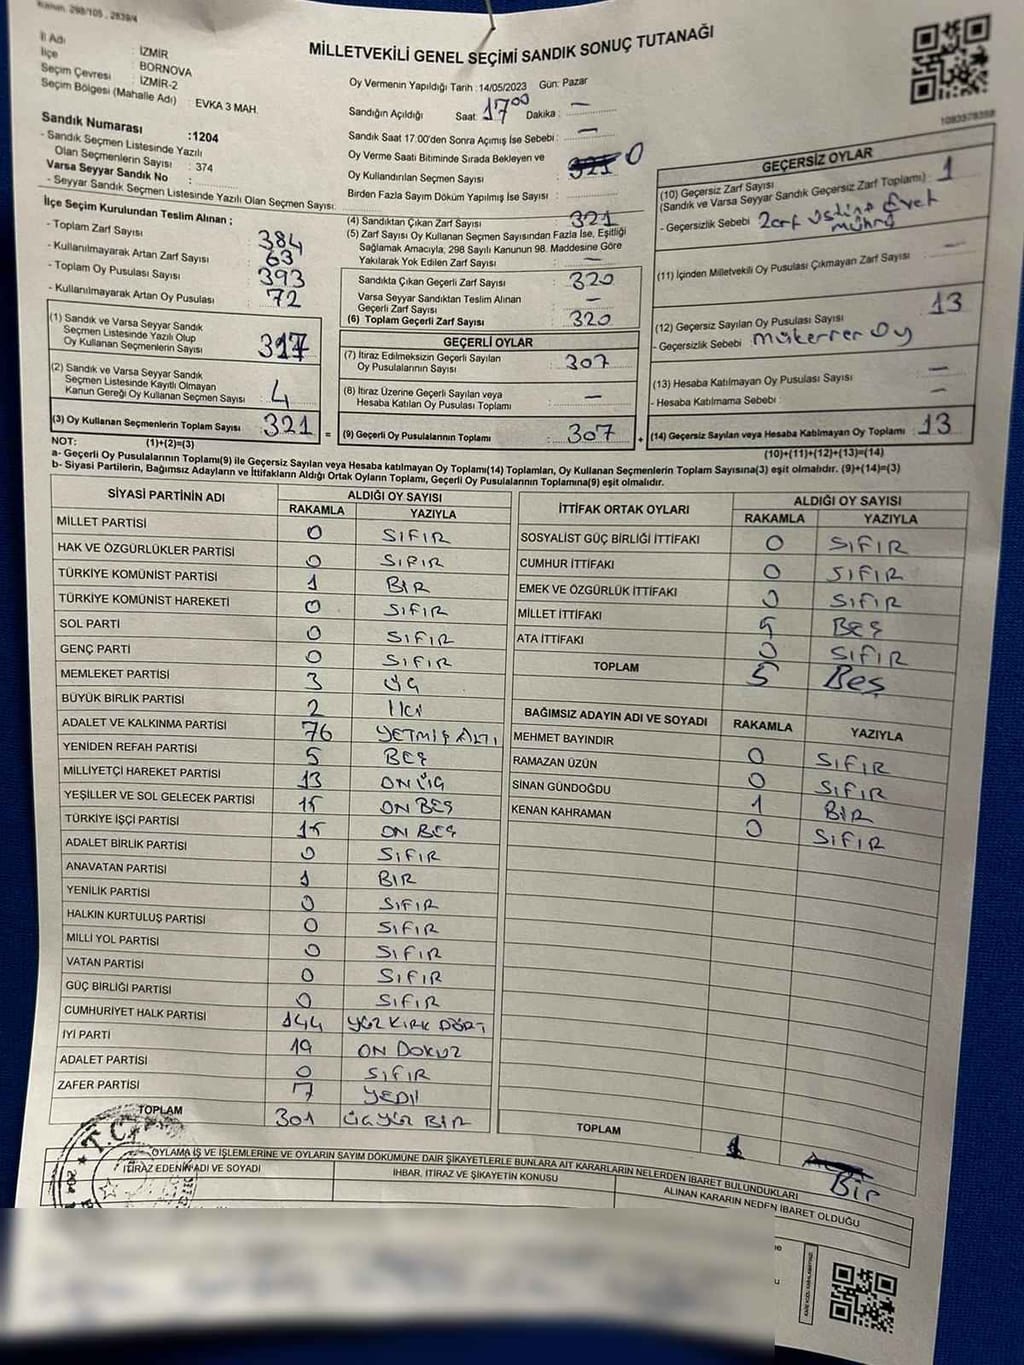 Kanun. 298/105 , 2839/4
MİLLETVEKİLİ GENEL SEÇİMİ SANDIK SONUÇ TUTANAĞI
İl Adı : İZMİR
İlçe : BORNOVA
Seçim Çevresi : İZMİR-2
Seçim Bölgesi (Mahalle Adı) : EVKA 3 MAH.
Sandık Numarası :1204
- Sandık Seçmen Listesinde Yazılı
Olan Seçmenlerin Sayısı : 374
Varsa Seyyar Sandık No :
- Seyyar Sandık Seçmen Listesinde Yazılı Olan Seçmen Sayısı:
İlçe Seçim Kurulundan Teslim Alınan ;
- Toplam Zarf Sayısı : 384
- Kullanılmayarak Artan Zarf Sayısı : 63
- Toplam Oy Pusulası Sayısı : 393
- Kullanılmayarak Artan Oy Pusulası : 72
(1) Sandık ve Varsa Seyyar Sandık
Seçmen Listesinde Yazılı Olup
Oy Kullanan Seçmenlerin Sayısı : 317
(2) Sandık ve Varsa Seyyar Sandık
Seçmen Listesinde Kayıtlı Olmayan
Kanun Gereği Oy Kullanan Seçmen Sayısı : 4
(3) Oy Kullanan Seçmenlerin Toplam Sayısı : 321
Oy Vermenin Yapıldığı Tarih :14/05/2023 Gün: Pazar
Sandığın Açıldığı Saat: 17 00 Dakika : —
Sandık Saat 17:00'den Sonra Açımış İse Sebebi : —
Oy Verme Saati Bitiminde Sırada Bekleyen ve
Oy Kullandırılan Seçmen Sayısı : 0
Birden Fazla Sayım Döküm Yapılmış İse Sayısı :
(4) Sandıktan Çıkan Zarf Sayısı : 321
(5) Zarf Sayısı Oy Kullanan Seçmen Sayısından Fazla İse, Eşitliği
Sağlamak Amacıyla, 298 Sayılı Kanunun 98. Maddesine Göre
Yakılarak Yok Edilen Zarf Sayısı : —
Sandıkta Çıkan Geçerli Zarf Sayısı : 320
Varsa Seyyar Sandıktan Teslim Alınan
Geçerli Zarf Sayısı : —
(6) Toplam Geçerli Zarf Sayısı : 320
GEÇERLİ OYLAR
(7) İtiraz Edilmeksizin Geçerli Sayılan
Oy Pusulalarının Sayısı : 307
(8) İtiraz Üzerine Geçerli Sayılan veya
Hesaba Katılan Oy Pusulası Toplamı : —
= (9) Geçerli Oy Pusulalarının Toplamı : 307 +
1093578359
GEÇERSİZ OYLAR
(10) Geçersiz Zarf Sayısı : 1
(Sandık ve Varsa Seyyar Sandık Geçersiz Zarf Toplamı)
- Geçersizlik Sebebi : Zarf üstüne Evet
mührü
(11) İçinden Milletvekili Oy Pusulası Çıkmayan Zarf Sayısı : —
(12) Geçersiz Sayılan Oy Pusulası Sayısı : 13
- Geçersizlik Sebebi : Mükerrer Oy
(13) Hesaba Katılmayan Oy Pusulası Sayısı : —
- Hesaba Katılmama Sebebi : —
(14) Geçersiz Sayılan veya Hesaba Katılmayan Oy Toplamı : 13
NOT: (1)+(2)=(3)
(10)+(11)+(12)+(13)=(14)
a- Geçerli Oy Pusulalarının Toplamı(9) ile Geçersiz Sayılan veya Hesaba katılmayan Oy Toplamı(14) Toplamları, Oy Kullanan Seçmenlerin Toplam Sayısına(3) eşit olmalıdır. (9)+(14)=(3)
b- Siyasi Partilerin, Bağımsız Adayların ve İttifakların Aldığı Ortak Oyların Toplamı, Geçerli Oy Pusulalarının Toplamına(9) eşit olmalıdır.
SİYASİ PARTİNİN ADI ALDIĞI OY SAYISI
RAKAMLA YAZIYLA
MİLLET PARTİSİ 0 SIFIR
HAK VE ÖZGÜRLÜKLER PARTİSİ 0 SIFIR
TÜRKİYE KOMÜNİST PARTİSİ 1 BİR
TÜRKİYE KOMÜNİST HAREKETİ 0 SIFIR
SOL PARTİ 0 SIFIR
GENÇ PARTİ 0 SIFIR
MEMLEKET PARTİSİ 3 ÜÇ
BÜYÜK BİRLİK PARTİSİ 2 İki
ADALET VE KALKINMA PARTİSİ 76 YETMİŞ ALTI
YENİDEN REFAH PARTİSİ 5 BEŞ
MİLLİYETÇİ HAREKET PARTİSİ 13 ON ÜÇ
YEŞİLLER VE SOL GELECEK PARTİSİ 15 ON BEŞ
TÜRKİYE İŞÇİ PARTİSİ 15 ON BEŞ
ADALET BİRLİK PARTİSİ 0 SIFIR
ANAVATAN PARTİSİ 1 BİR
YENİLİK PARTİSİ 0 SIFIR
HALKIN KURTULUŞ PARTİSİ 0 SIFIR
MİLLİ YOL PARTİSİ 0 SIFIR
VATAN PARTİSİ 0 SIFIR
GÜÇ BİRLİĞİ PARTİSİ 0 SIFIR
CUMHURİYET HALK PARTİSİ 144 YÜZ KIRK DÖRT
İYİ PARTİ 19 ON DOKUZ
ADALET PARTİSİ 0 SIFIR
ZAFER PARTİSİ 7 YEDİ
TOPLAM 301 ÜÇ YÜZ BİR
İTTİFAK ORTAK OYLARI ALDIĞI OY SAYISI
RAKAMLA YAZIYLA
SOSYALİST GÜÇ BİRLİĞİ İTTİFAKI 0 SIFIR
CUMHUR İTTİFAKI 0 SIFIR
EMEK VE ÖZGÜRLÜK İTTİFAKI 0 SIFIR
MİLLET İTTİFAKI 5 BEŞ
ATA İTTİFAKI 0 SIFIR
TOPLAM 5 Beş
BAĞIMSIZ ADAYIN ADI VE SOYADI RAKAMLA YAZIYLA
MEHMET BAYINDIR 0 SIFIR
RAMAZAN ÜZÜN 0 SIFIR
SİNAN GÜNDOĞDU 1 BİR
KENAN KAHRAMAN 0 SIFIR
TOPLAM 1 Bir
OYLAMA İŞ VE İŞLEMLERİNE VE OYLARIN SAYIM DÖKÜMÜNE DAİR ŞİKAYETLERLE BUNLARA AİT KARARLARIN NELERDEN İBARET BULUNDUKLARI
İTİRAZ EDENİN ADI VE SOYADI İHBAR, İTİRAZ VE ŞİKAYETİN KONUSU ALINAN KARARIN NEDEN İBARET OLDUĞU
T.C.